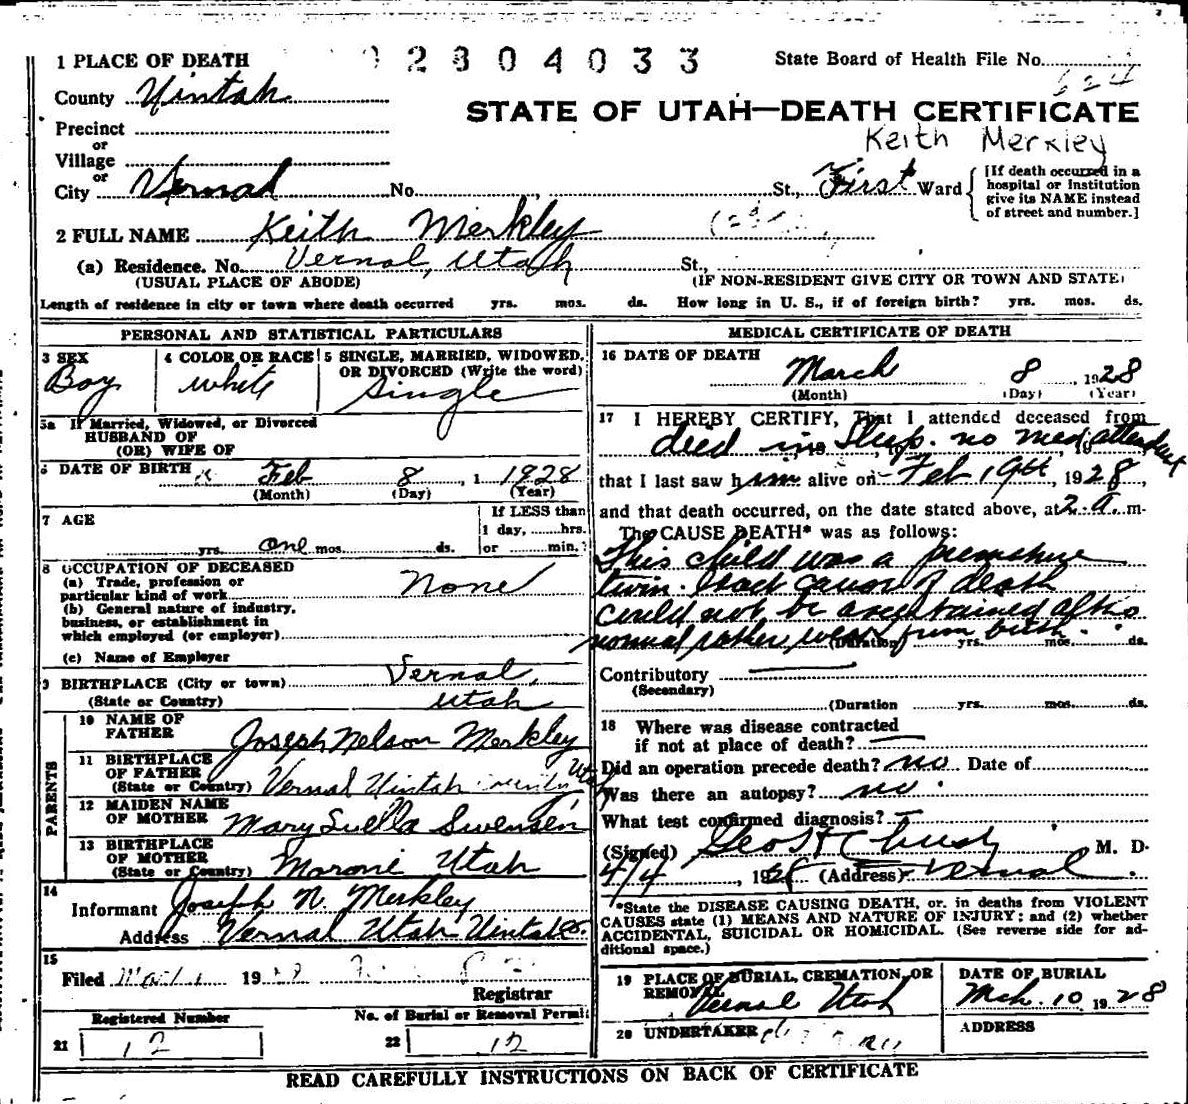 1 PLACE OF DEATH
2 8 0 4 0 3 3
State Board of Health File No.
624
County Uintah
STATE OF UTAH—DEATH CERTIFICATE
Precinct
or
Keith Merkley
Village
or
City Vernal No. , St., First Ward
[If death occurred in a hospital or Institution give its NAME instead of street and number.]
2 FULL NAME Keith Merkley
(a) Residence. No. Vernal, Utah St.,
(USUAL PLACE OF ABODE) (IF NON-RESIDENT GIVE CITY OR TOWN AND STATE)
Length of residence in city or town where death occurred yrs. mos. ds. How long in U. S., if of foreign birth? yrs. mos. ds.
PERSONAL AND STATISTICAL PARTICULARS
3 SEX
Boy
4 COLOR OR RACE
white
5 SINGLE, MARRIED, WIDOWED, OR DIVORCED (Write the word)
Single
5a If Married, Widowed, or Divorced
HUSBAND OF
(OR) WIFE OF
6 DATE OF BIRTH Feb 8 1928
(Month) (Day) (Year)
7 AGE
yrs. one mos. ds.
If LESS than
1 day, hrs.
or min.
8 OCCUPATION OF DECEASED
(a) Trade, profession or
particular kind of work None
(b) General nature of industry,
business, or establishment in
which employed (or employer)
(c) Name of Employer
9 BIRTHPLACE (City or town) Vernal,
(State or Country) Utah
PARENTS
10 NAME OF FATHER Joseph Nelson Merkley
11 BIRTHPLACE OF FATHER
(State or Country) Vernal Uintah Utah
12 MAIDEN NAME OF MOTHER Mary Luella Swensen
13 BIRTHPLACE OF MOTHER
(State or Country) Moroni Utah
14
Informant Joseph N. Merkley
Address Vernal Utah Uintah Co.
15
Filed 19
Registrar
Registered Number
No. of Burial or Removal Permit
21 12 22 12
MEDICAL CERTIFICATE OF DEATH
16 DATE OF DEATH March 8, 1928
(Month) (Day) (Year)
17 I HEREBY CERTIFY, That I attended deceased from
died in sleep. no med attendent
that I last saw him alive on Feb 19th 1928,
and that death occurred, on the date stated above, at 2 a. m.
The CAUSE DEATH* was as follows:
This child was a premature
twin. Exact cause of death
could not be ascertained altho
normal rather weak from birth.
(Duration) yrs. mos. ds.
Contributory
(Secondary)
(Duration yrs. mos. ds.
18 Where was disease contracted
if not at place of death?
Did an operation precede death? no Date of
Was there an autopsy? no.
What test confirmed diagnosis?
(Signed) Geo M. D.
4/4, 1928 (Address) Vernal
*State the DISEASE CAUSING DEATH, or, in deaths from VIOLENT
CAUSES state (1) MEANS AND NATURE OF INJURY; and (2) whether
ACCIDENTAL, SUICIDAL OR HOMICIDAL. (See reverse side for ad-
ditional space.)
19 PLACE OF BURIAL, CREMATION, OR
REMOVAL Vernal Utah
DATE OF BURIAL
Mch. 10 1928
20 UNDERTAKER
ADDRESS
READ CAREFULLY INSTRUCTIONS ON BACK OF CERTIFICATE